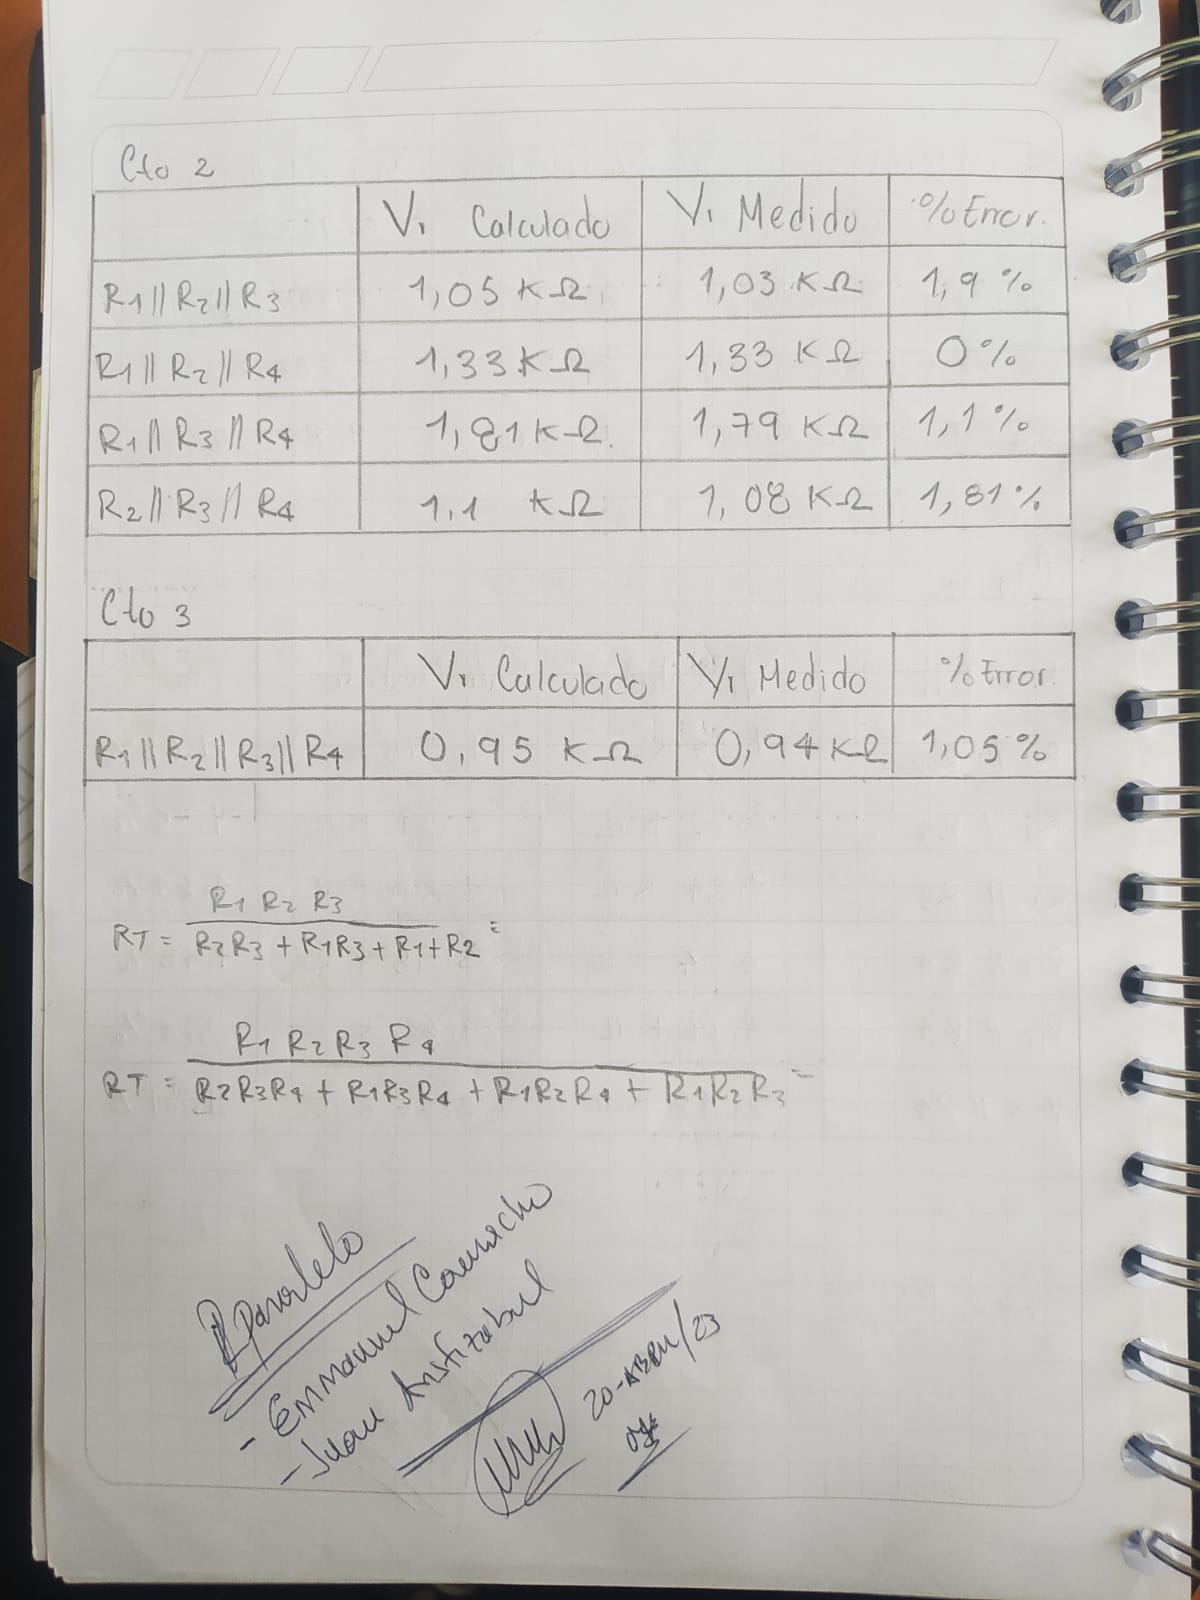 Cto 2
V1 Calculado V1 Medido % Error.
R1 || R2 || R3 1,05 KΩ 1,03 KΩ 1,9 %
R1 || R2 || R4 1,33 KΩ 1,33 KΩ 0 %
R1 || R3 || R4 1,81 KΩ. 1,79 KΩ 1,1 %
R2 || R3 || R4 1,1 KΩ 1,08 KΩ 1,81 %
Cto 3
V1 Calculado V1 Medido % Error.
R1 || R2 || R3 || R4 0,95 KΩ 0,94 KΩ 1,05 %
R1 R2 R3
RT = R2R3 + R1R3 + R1+R2 =
R1 R2 R3 R4
RT = R2R3R4 + R1R3R4 + R1R2R4 + R1R2R3 =
R Paralelo
- Emmanuel Camacho
- Juan
20-ABRIL/23